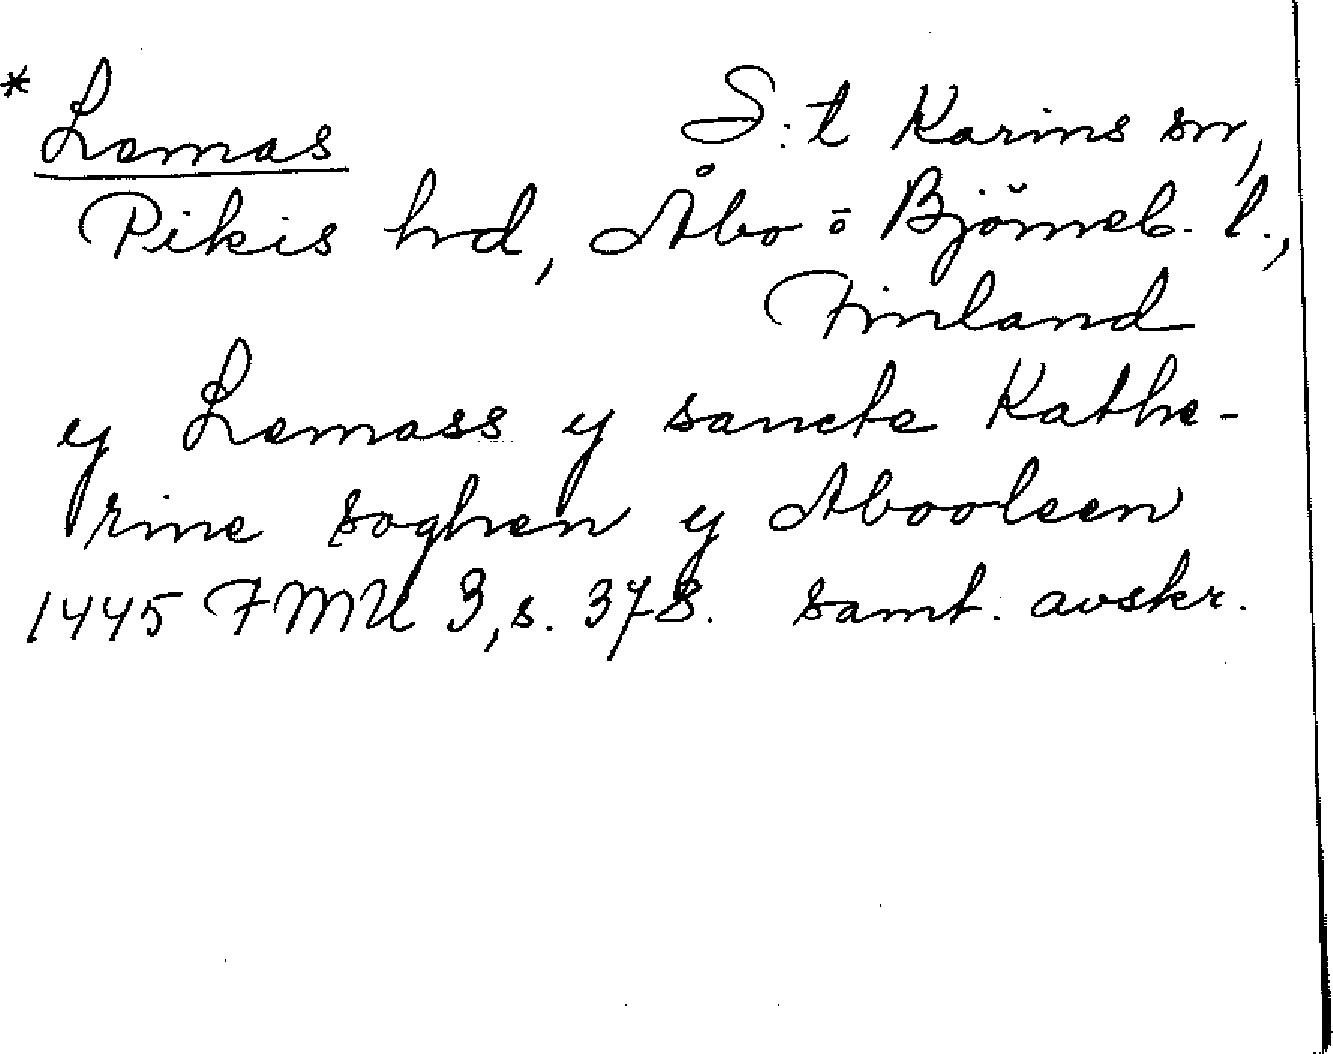 * Lemas S:t Karins sn,
Pikis hd, Åbo o Björneb. l.,
Finland
y Lemass y sancte Kathe-
rine soghen y Abooleen
1445 FMU 3, s. 378. samt. avskr.